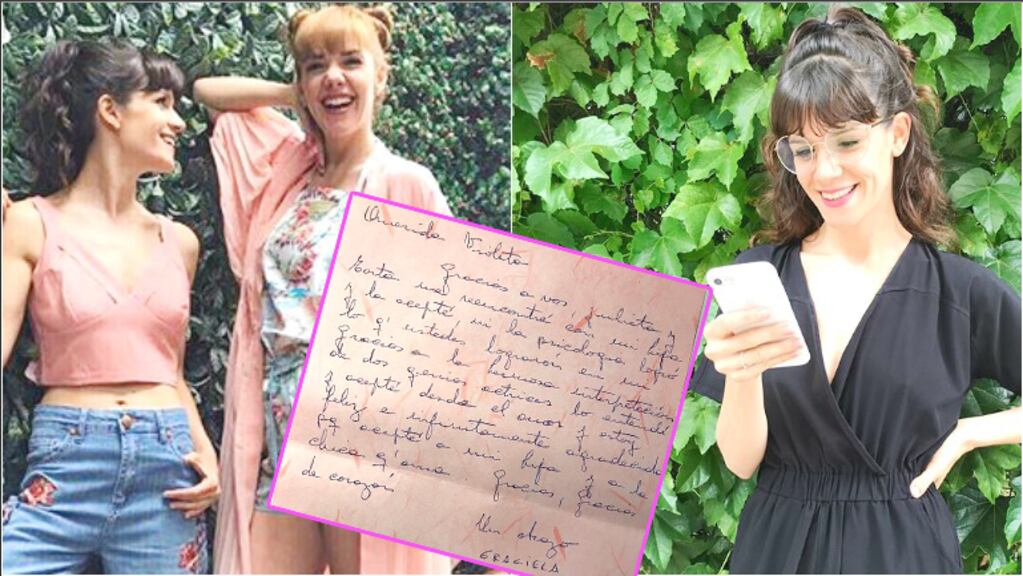 Querida Violeta
gracias a vos, Julieta y
Esta me reencontré con mi hija
y la acepté ni la psicologa logró
lo q' ustedes lograron en mi
gracias a la hermosa interpretación
de dos genias actrices lo entendí
y acepté desde el amor y estoy
feliz e infinitamente agradecida
pq acepté a mi hija y a la
chica q' ama. Gracias, gracias
de corazón
Un abrazo
GRACIELA